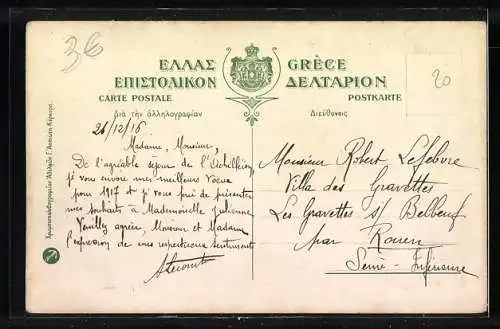 36
20
ΕΛΛΑΣ GRÈCE
ΕΠΙΣΤΟΛΙΚΟΝ ΔΕΛΤΑΡΙΟΝ
CARTE POSTALE POSTKARTE
Διὰ τὴν ἀλληλογραφίαν Διεύθυνσις
26/12/16
Madame, Monsieur,
De l'agréable séjour de l'Achilleion,
je vous envoie mes meilleurs vœux
pour 1917 et je vous prie de présenter
mes souhaits à Mademoiselle Julienne
Veuillez agréer, Monsieur et Madame
l'expression de mes respectueux sentiments
Monsieur Robert Lefebvre
Villa des Gravettes
Les Gravettes s/ Belbeuf
par Rouen
Seine-Inférieure